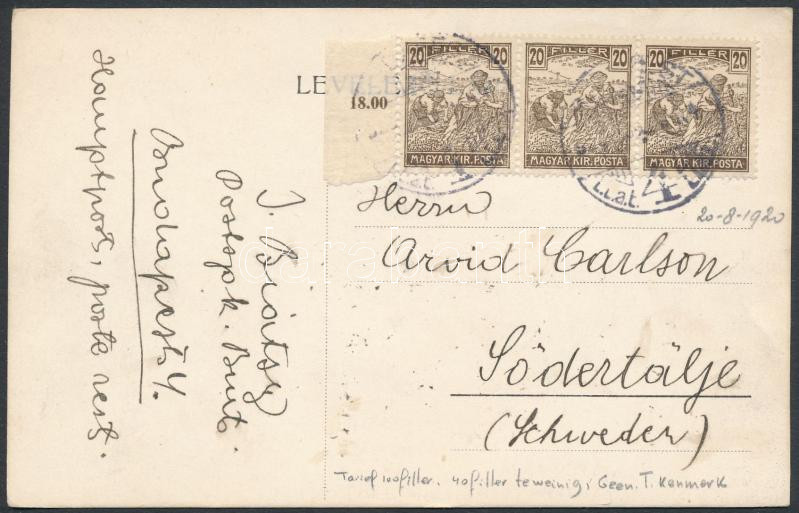 LEVELE
18.00
20 FILLÉR 20
MAGYAR KIR. POSTA
20 FILLÉR 20
MAGYAR KIR. POSTA
20 FILLÉR 20
MAGYAR KIR. POSTA
4
Herrn
Arvid Carlson
Södertälje
(Schweden)
20-8-1920
J.
Postspk. Beamt.
Budapest 4.
Hauptpost, poste rest.
Tarief 100 filler. 40 filler te weinig, Geen T. Kenmerk